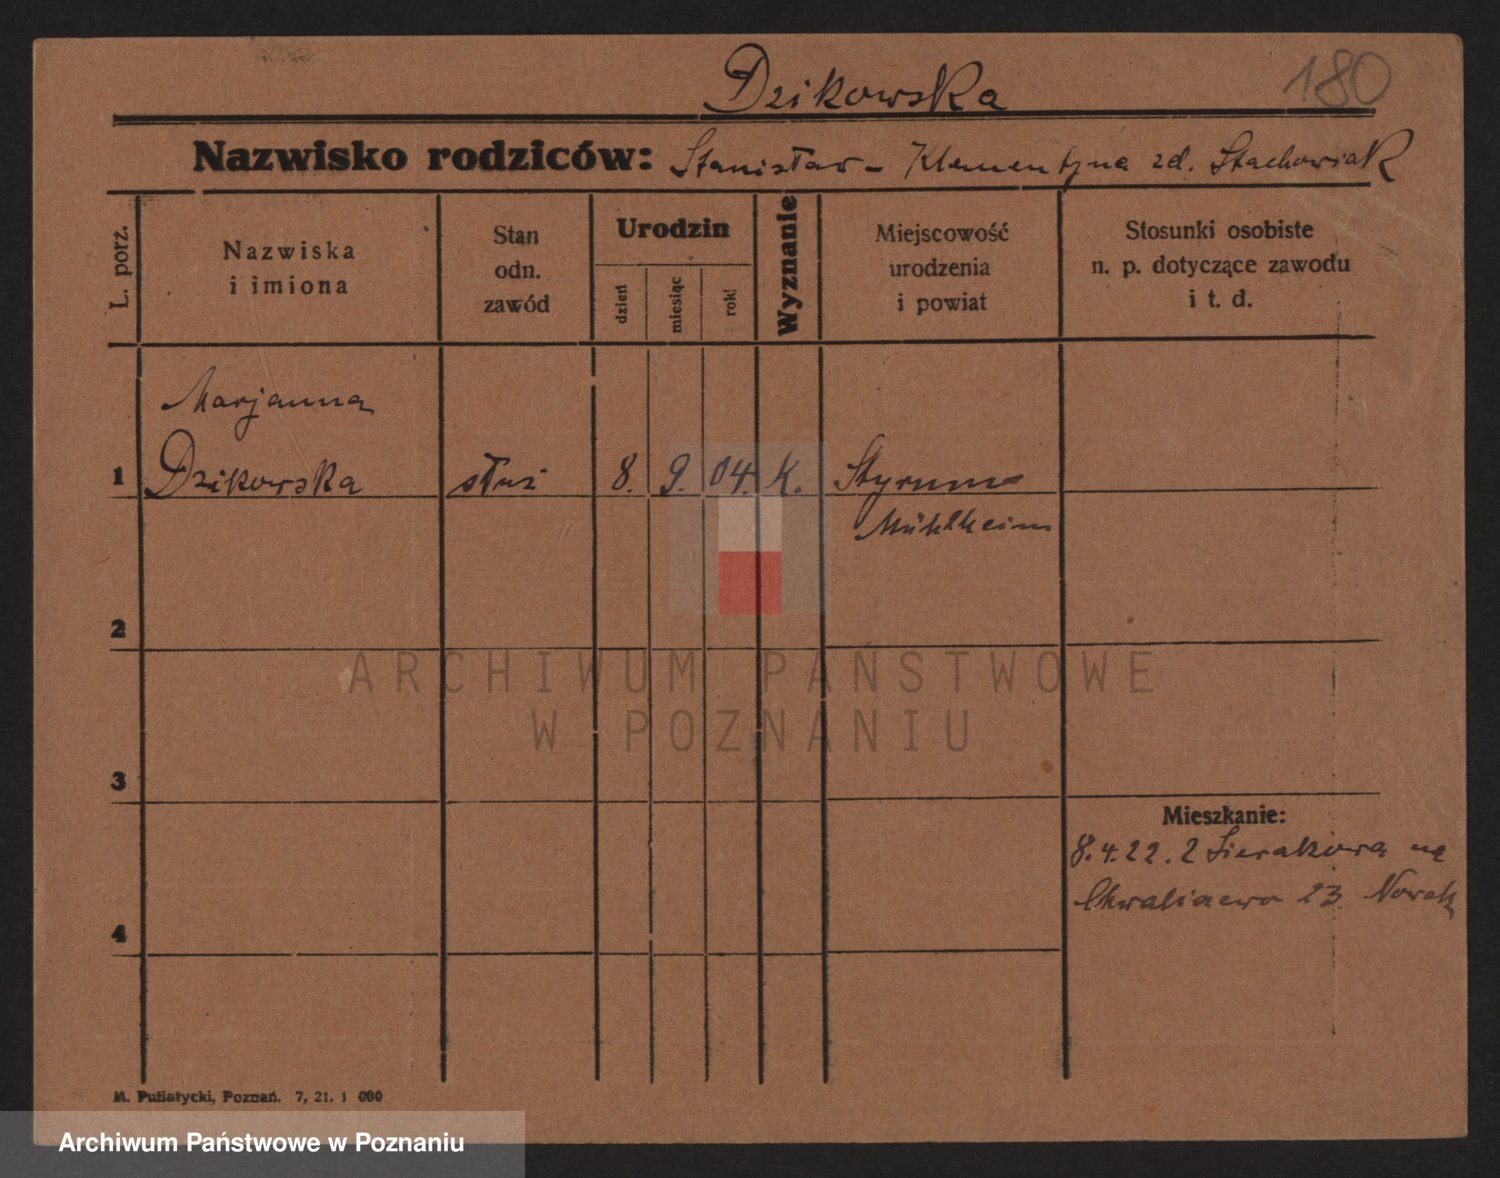 Dzikowska
180
Nazwisko rodziców: Stanisław - Klementyna zd. Stachowiak
L. porz.
Nazwiska
i imiona
Stan
odn.
zawód
Urodzin
dzień
miesiąc
rok
Wyznanie
Miejscowość
urodzenia
i powiat
Stosunki osobiste
n. p. dotyczące zawodu
i t. d.
Marjanna
1 Dzikowska służ 8. 9. 04. K. Styrum
Mühlheim
2
ARCHIWUM PAŃSTWOWE
W POZNANIU
3
Mieszkanie:
8.4.22. z Sierakowa na
4 Chwaliszewo 23 Nowak
M. Putiatycki, Poznań. 7, 21. 1 000
Archiwum Państwowe w Poznaniu